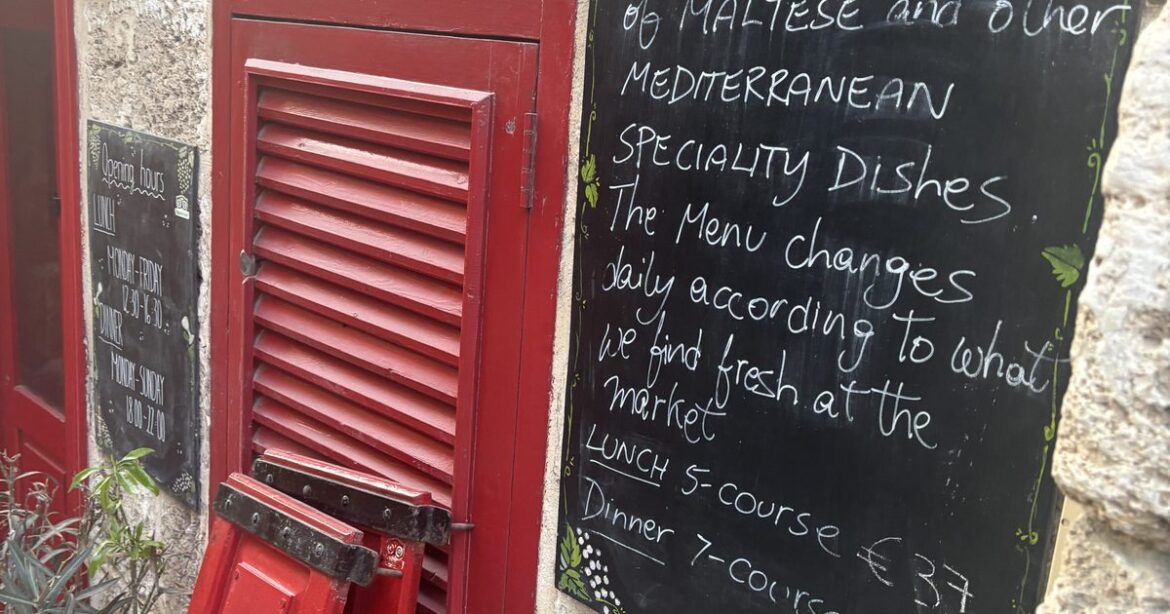 Opening hours
LUNCH
MONDAY-FRIDAY
12:30-16:30
DINNER
MONDAY-SUNDAY
18:00-22:00
of MALTESE and other
MEDITERRANEAN
SPECIALITY Dishes.
The Menu changes
daily according to what
we find fresh at the
market
LUNCH 5-course €37
Dinner 7-cours